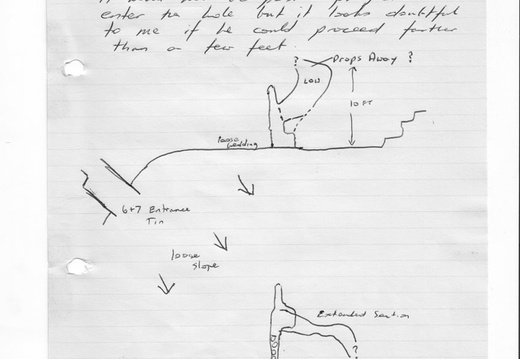 enter the hole but it looks doubtful
to me if he could proceed further
than a few feet.
? Drops Away ?
Low
10 FT
loose
6+7 Entrance
Tin
loose
slope
Extended Section
?